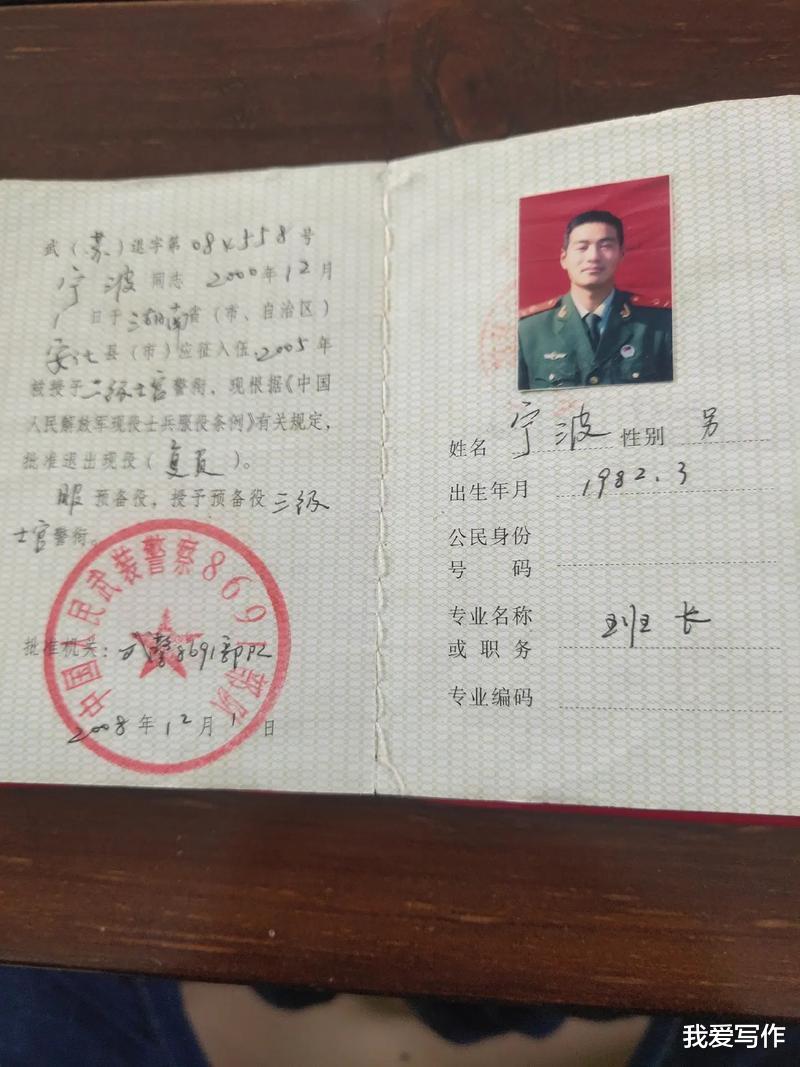 武（苏）退字第084558号
宁波同志 2000年12月
1日于湖南省（市、自治区）
安化县（市）应征入伍，2005年
被授予二级士官警衔，现根据《中国
人民解放军现役士兵服役条例》有关规定，
批准退出现役（复员）。
服预备役，授予预备役三级
士官警衔。
中国人民武装警察8691部队
批准机关：武警8691部队
2008年12月1日
姓名 宁波 性别 男
出生年月 1982.3
公民身份
号码
专业名称 班长
或职务
专业编码
我爱写作